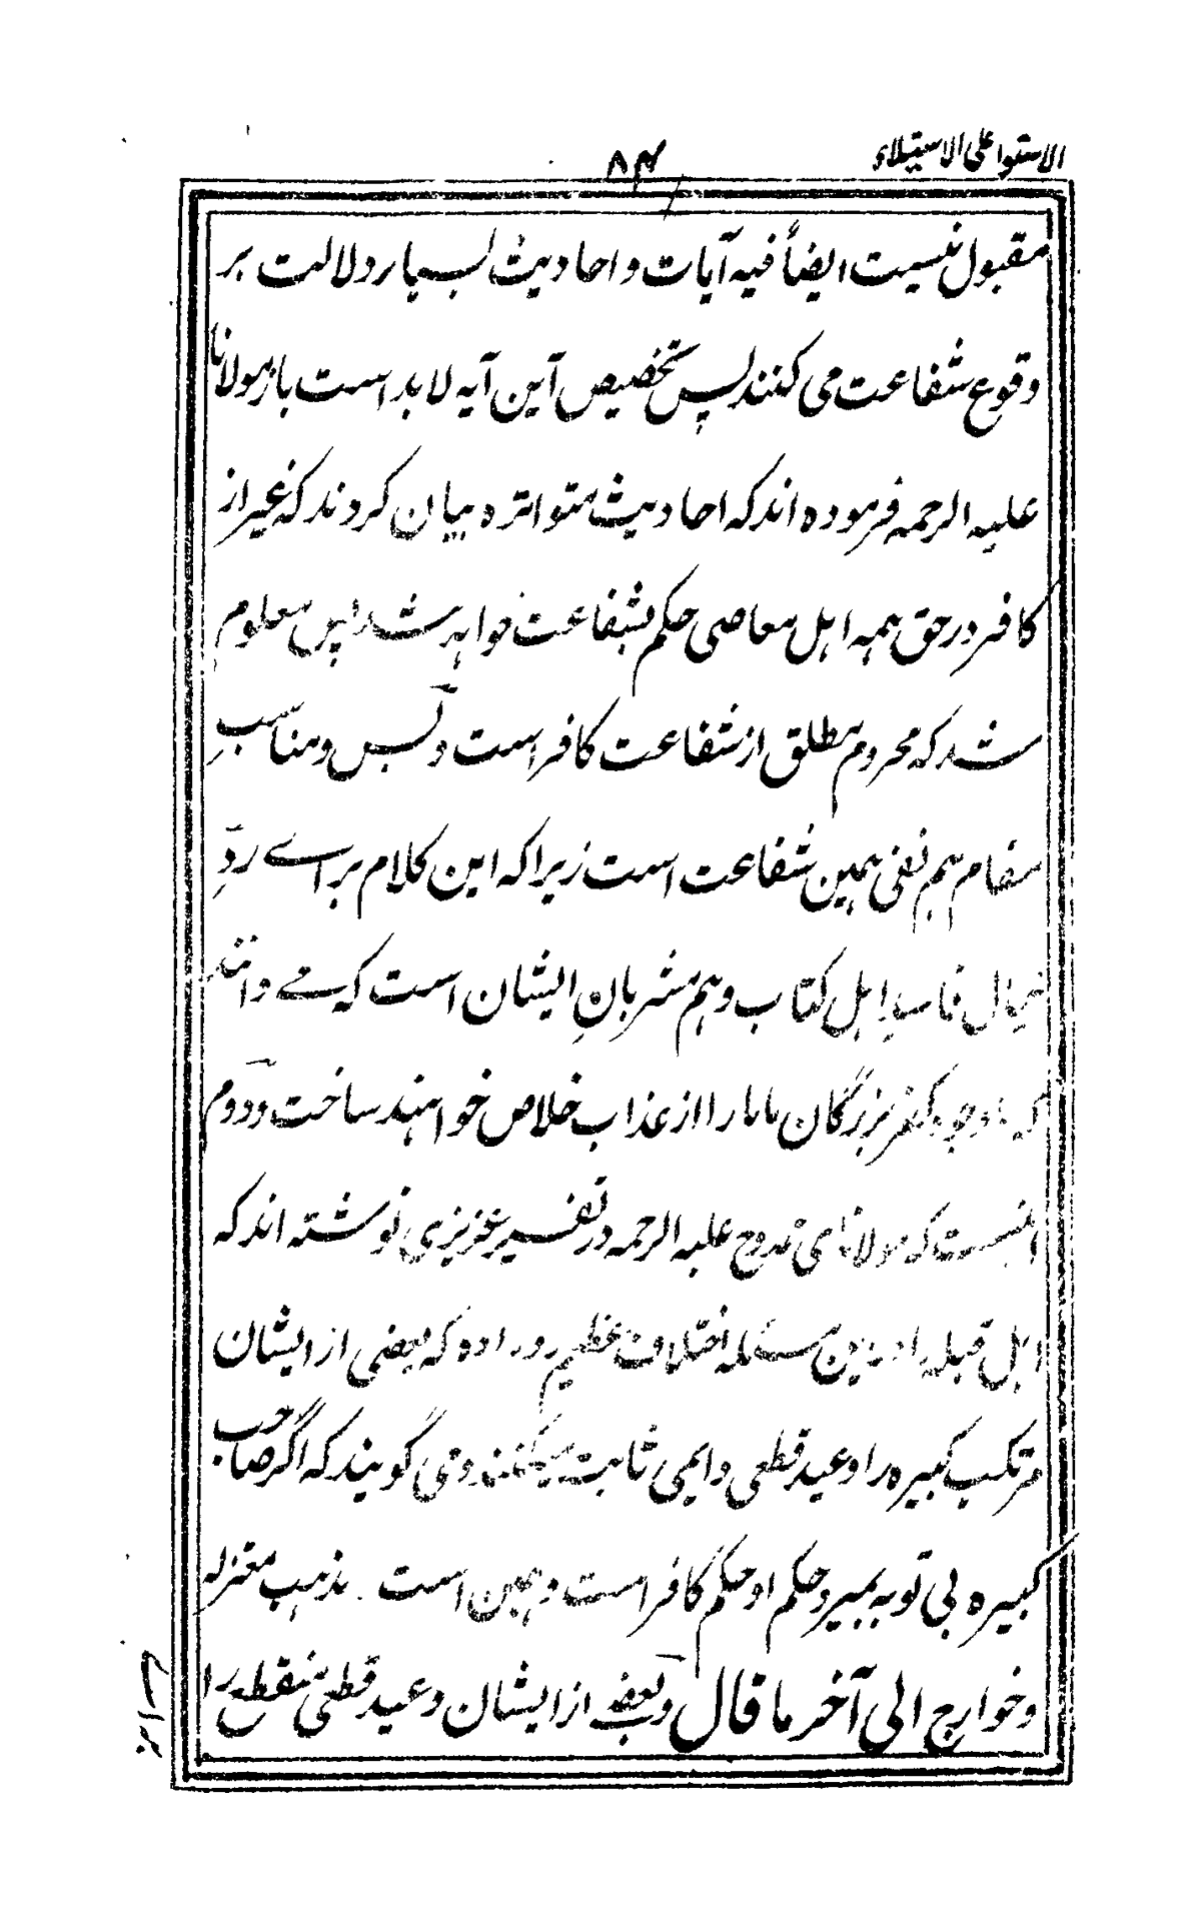 الاستوا علی الاستیلاء
۸۴
مقبول نیست ایضاً فیه آیات و احادیث بسیار دلالت بر
وقوع شفاعت می کنند پس تخصیص آین آیه لابد است باز مولانا
علیه الرحمه فرموده اند که احادیث متواتره بیان کردند که غیر از
کافر در حق همه اهل معاصی حکم بشفاعت خواهد شد پس معلوم
شد که محروم مطلق از شفاعت کافر است و بس و مناسب
مقام هم نفی همین شفاعت است زیرا که این کلام براے ردِّ
خیال فاسد اهل کتاب و هم مشربانِ ایشان است که مے دانند
که باوجود کفر بزرگان ما مارا از عذاب خلاص خواهند ساخت و دوم
اینست که مولانای ممدوح علیه الرحمه در تفسیر عزیزی نوشته اند که
اهل قبله را درین مسئله اختلاف عظیم رو داده که بعضی از ایشان
مرتکب کبیره را وعید قطعی دایمی ثابت میکنند و می گویند که اگر صاحب
کبیره بی توبه بمیرد حکم او حکم کافر است و همین است مذهب معتزله
و خوارج الی آخر ما قال و بعضے از ایشان وعید قطعی منقطع را
براے